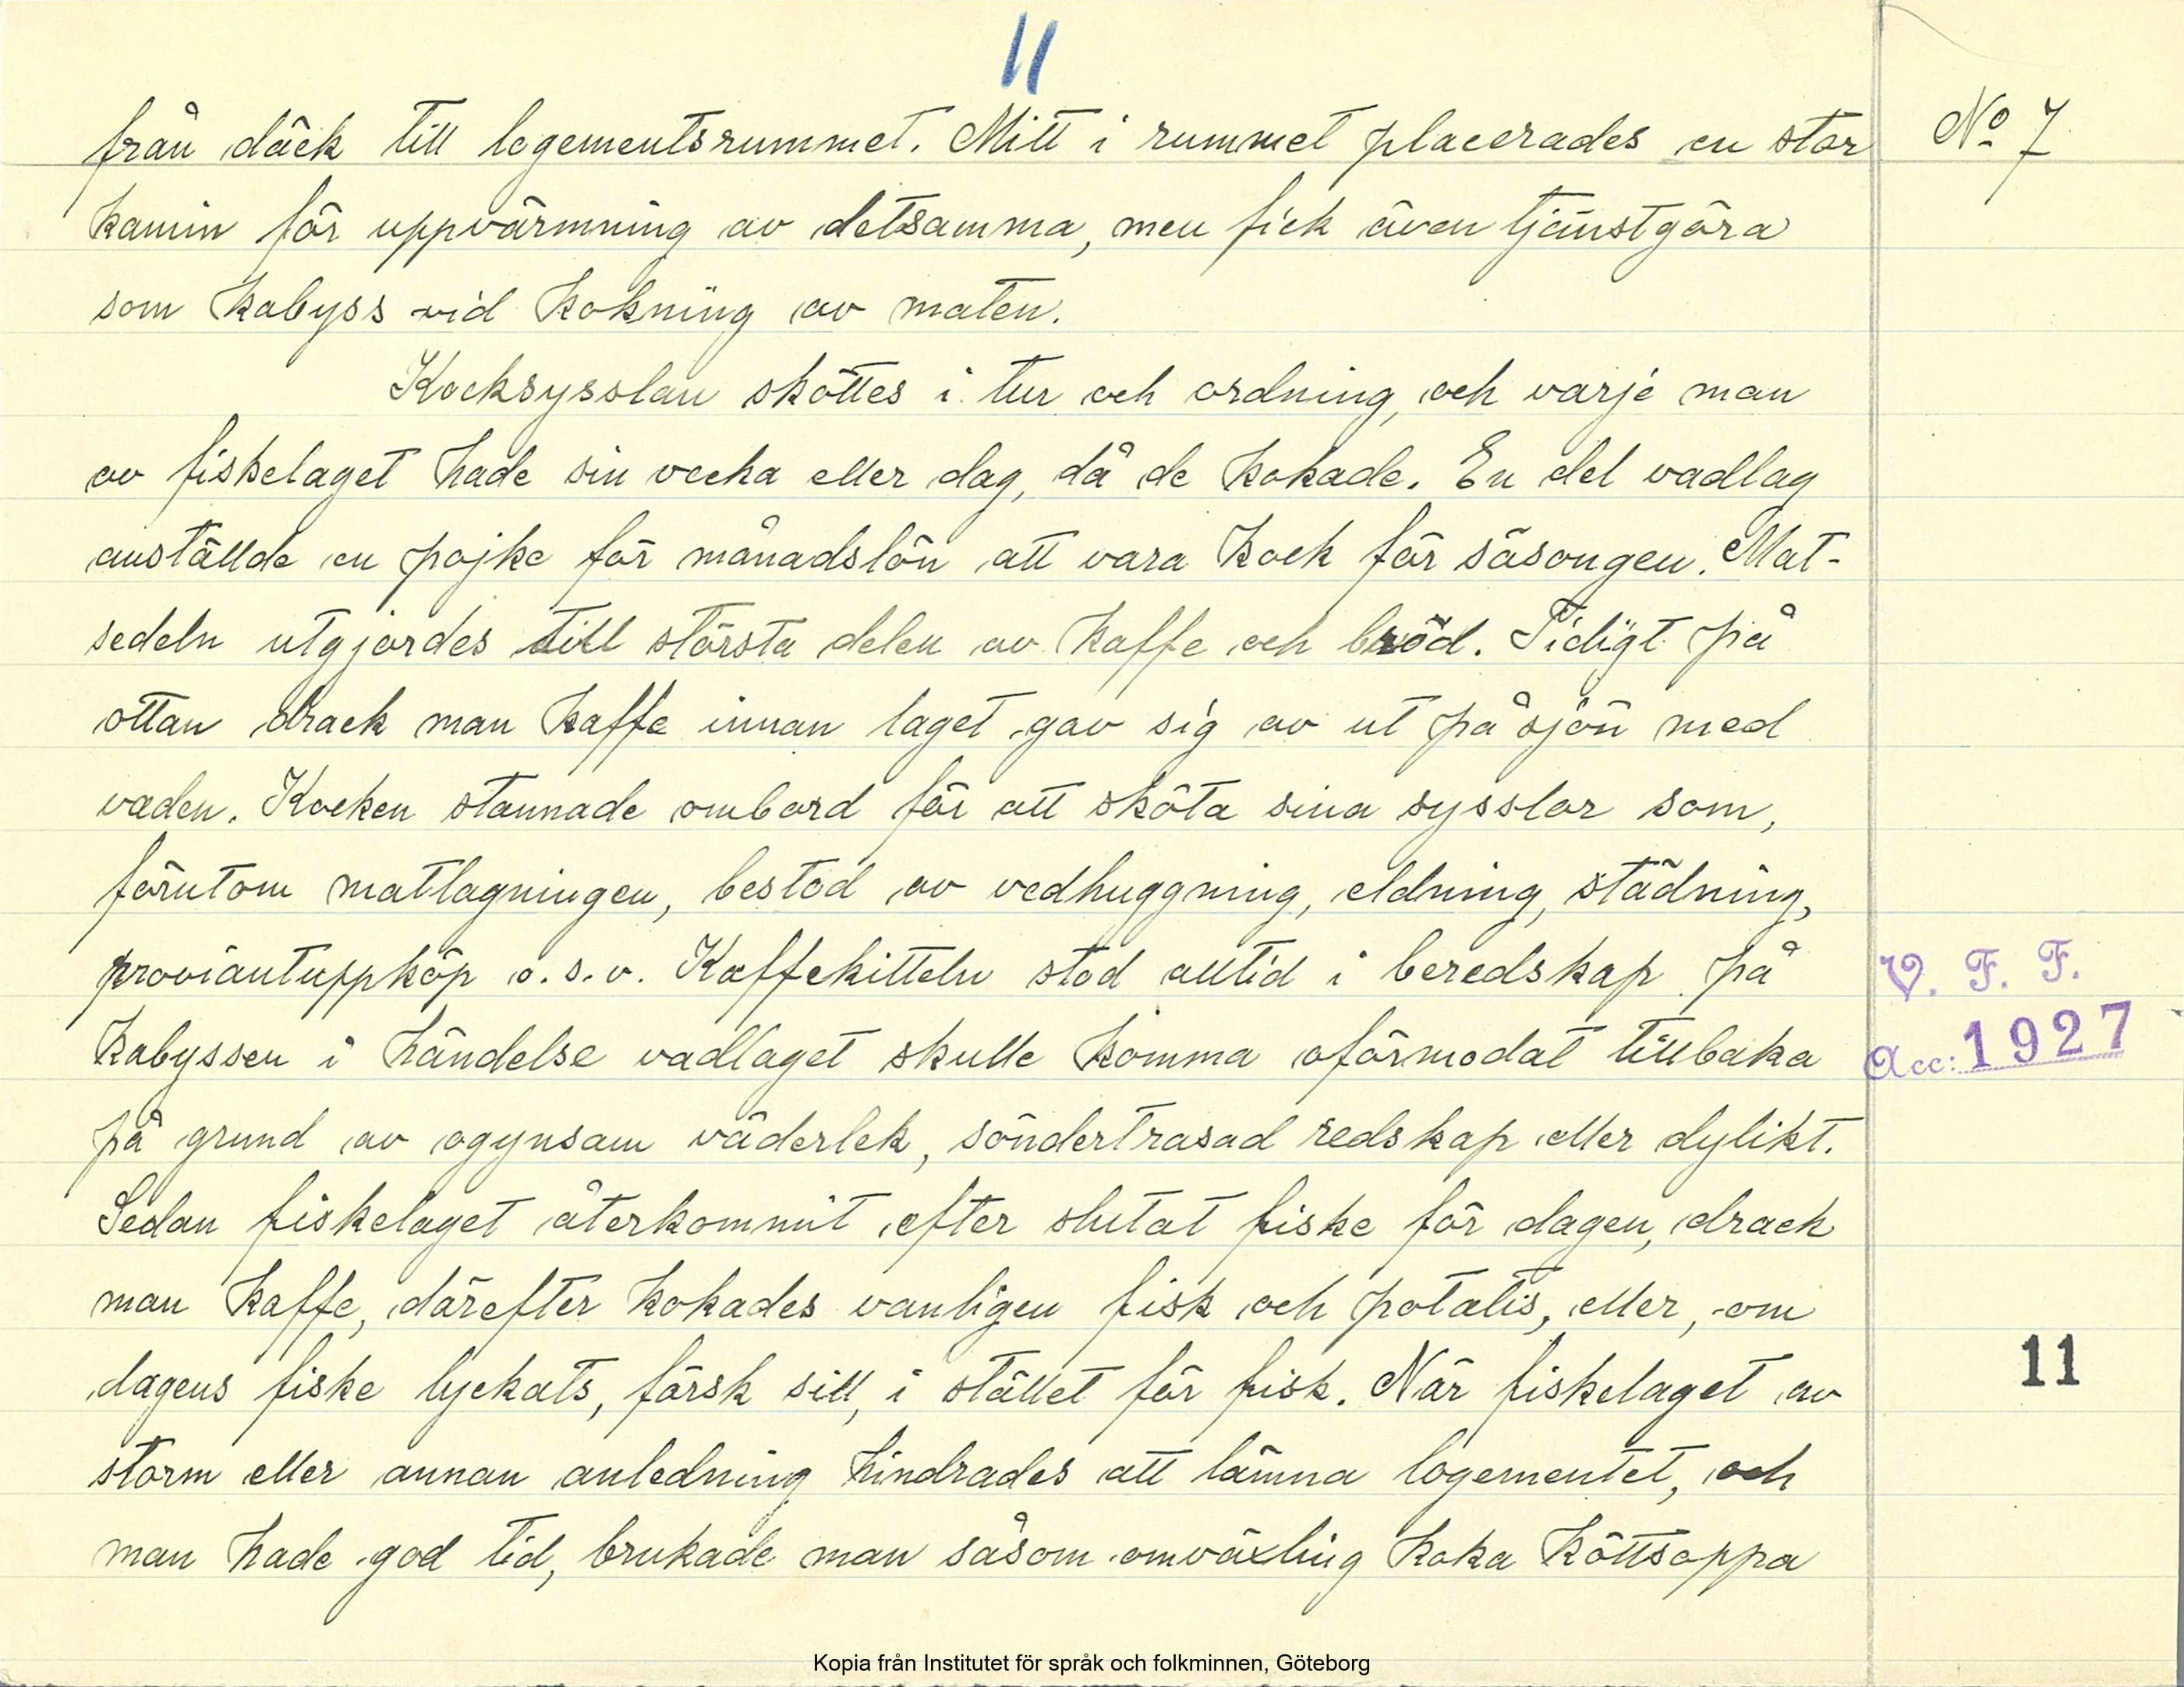 11
från däck till logementsrummet. Mitt i rummet placerades en stor
No 7
kamin för uppvärmning av detsamma, men fick även tjänstgöra
som kabyss vid kokning av maten.
Kocksysslan sköttes i tur och ordning, och varje man
av fiskelaget hade sin vecka eller dag, då de kokade. En del vadlag
anställde en pojke för månadslön att vara kock för säsongen. Mat-
sedeln utgjordes till största delen av kaffe och bröd. Tidigt på
ottan drack man kaffe innan laget gav sig av ut på sjön med
vaden. Kocken stannade ombord för att sköta sina sysslor som,
förutom matlagningen, bestod av vedhuggning, eldning, städning,
proviantuppköp o.s.v. Kaffekitteln stod alltid i beredskap på
V. F. F.
kabyssen i händelse vadlaget skulle komma oförmodat tillbaka
Acc: 1927
på grund av ogynsam väderlek, söndertrasad redskap eller dylikt.
Sedan fiskelaget återkommit efter slutat fiske för dagen, drack
man kaffe, därefter kokades vanligen fisk och potatis, eller, om
dagens fiske lyckats, färsk sill, i stället för fisk. När fiskelaget av
11
storm eller annan anledning hindrades att lämna logementet, och
man hade god tid, brukade man såsom omväxling koka köttsoppa
Kopia från Institutet för språk och folkminnen, Göteborg